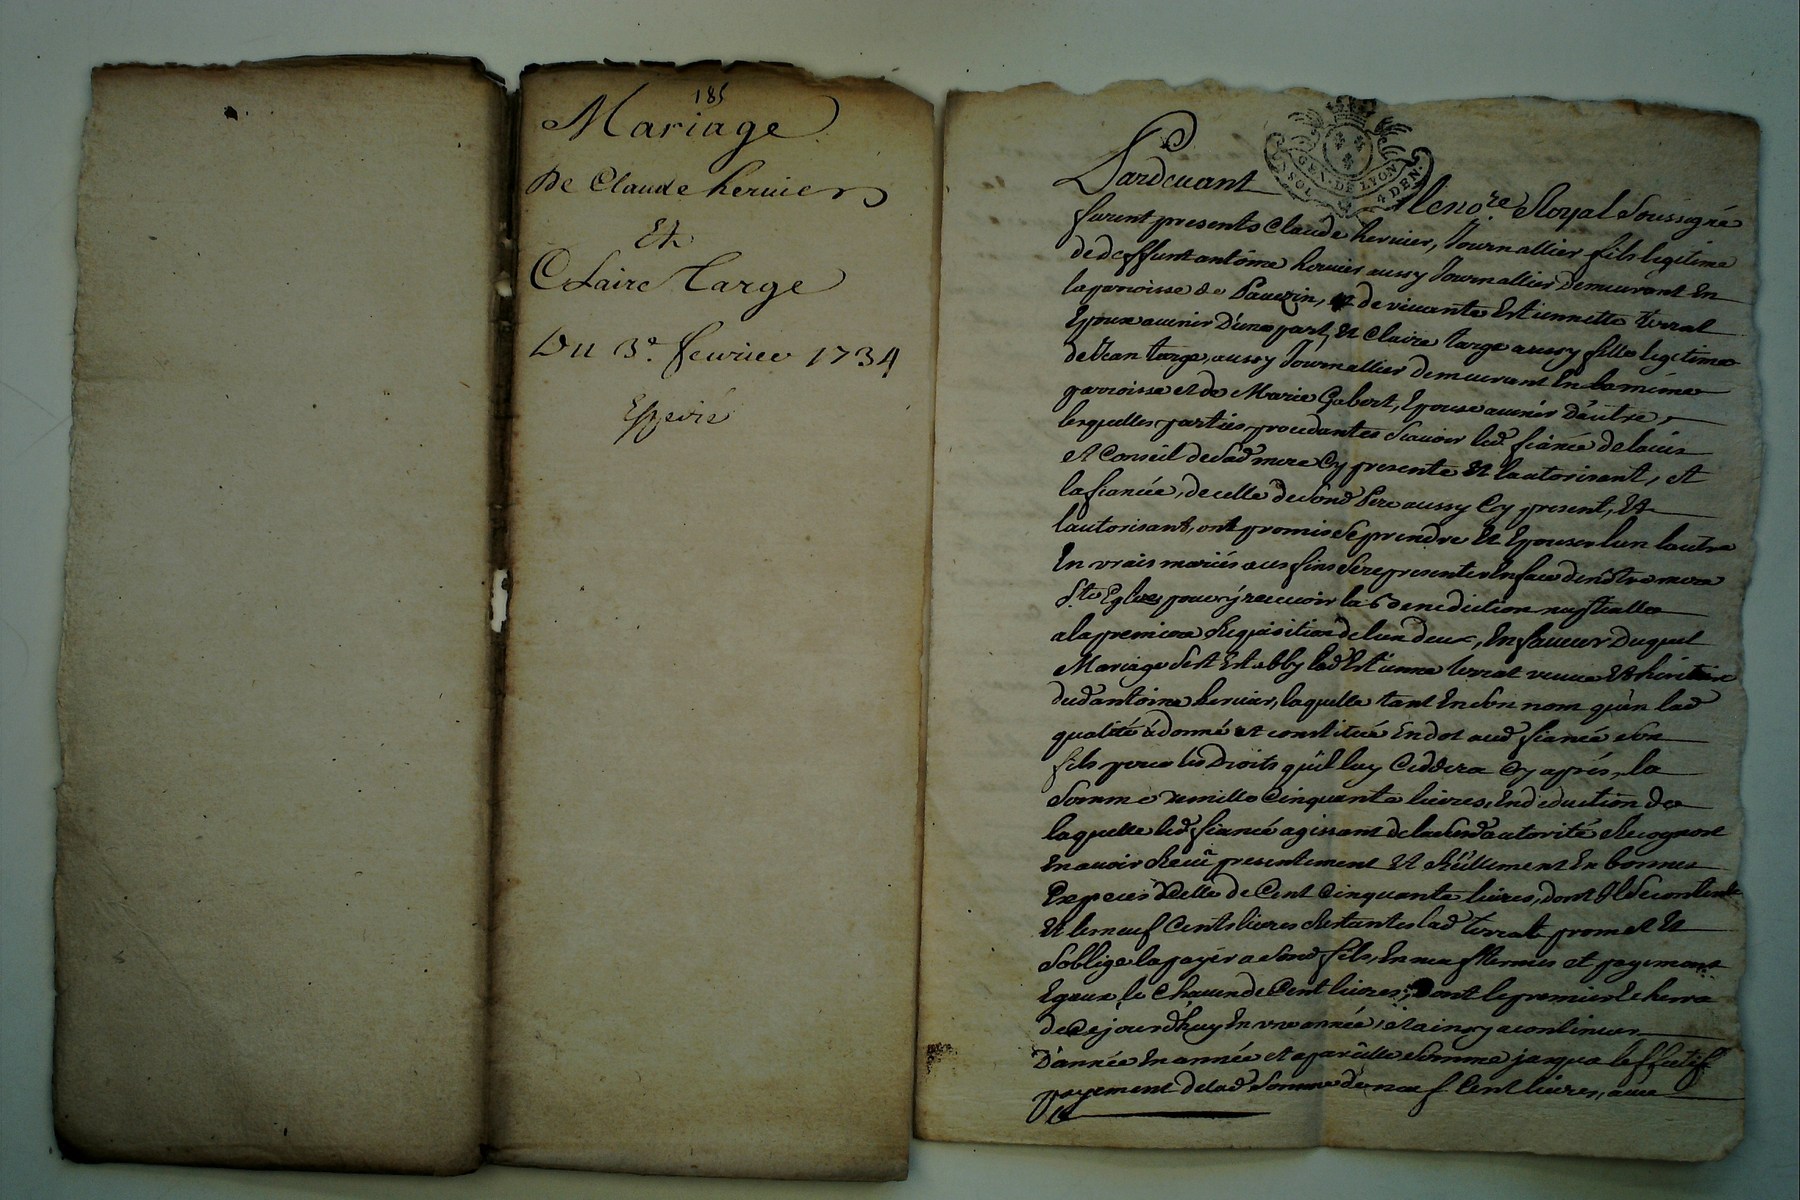 185
Mariage
De Claude hervier
Et
Claire Targe
Du 3e. fevrier 1734
Expedié
GEN. DE LYON
SOL 4 DEN
Pardevant le no.re Royal Soussigné
furent presents Claude hervier, Journallier fils legitime
de deffunt antoine hervier aussy Journallier demeurant En
la paroisse de Pavezin, et de vivante Estiennette terrat
Epoux avenir D'une part, Et Claire targe aussy fille legitime
de Jean targe, aussy Journallier demeurant En la même
parroisse et de Marie Gabert, Epouse avenir D'autre,
lesquelles parties procedantes Scavoir led. fiancé de lavis
et Conseil de Sad. mere Cy presente Et lautorisant, et
la fiancée, de celle de Sond. Pere aussy Cy present, Et
lautorisant, ont promis Se prendre Et Epouser lun lautre
En vrais mariés a ces fins Se representer En face de nôtre mere
S.te Eglise pour ÿ recevoir la benediction nuptialle
a la premiere Requisition de lun deux, En faveur Duquel
Mariage S'est Establÿ lad. Estienne terrat veuve Et héritiere
dud. antoine hervier, laquelle tant En Son nom qu'en lad.
qualité à donné et constitué En dot aud. fiancé Son
fils pour les Droits qu'il luy Ceddera Cy aprés, la
Somme de mille Cinquante livres, En deduction de
laquelle led. fiancé agissant de lad. autorité Recognoit
En avoir Reçu presentement Et Réellement En bonnes
Especes Celle de Cent Cinquante livres, dont Il Se contente
Et les neuf Cents livres Restantes lad. terrat promet Et
Soblige la payer a Sond. fils, En neuf termes et payements
Egaux, de Chacun de Cent livres, Dont le premier Echerra
de Cejourdhuy En une année, Et ainsy a continuer
D'année En année et a pareille Somme jusqua leffectif
payement de lad. Somme de neuf Cent livres, avec